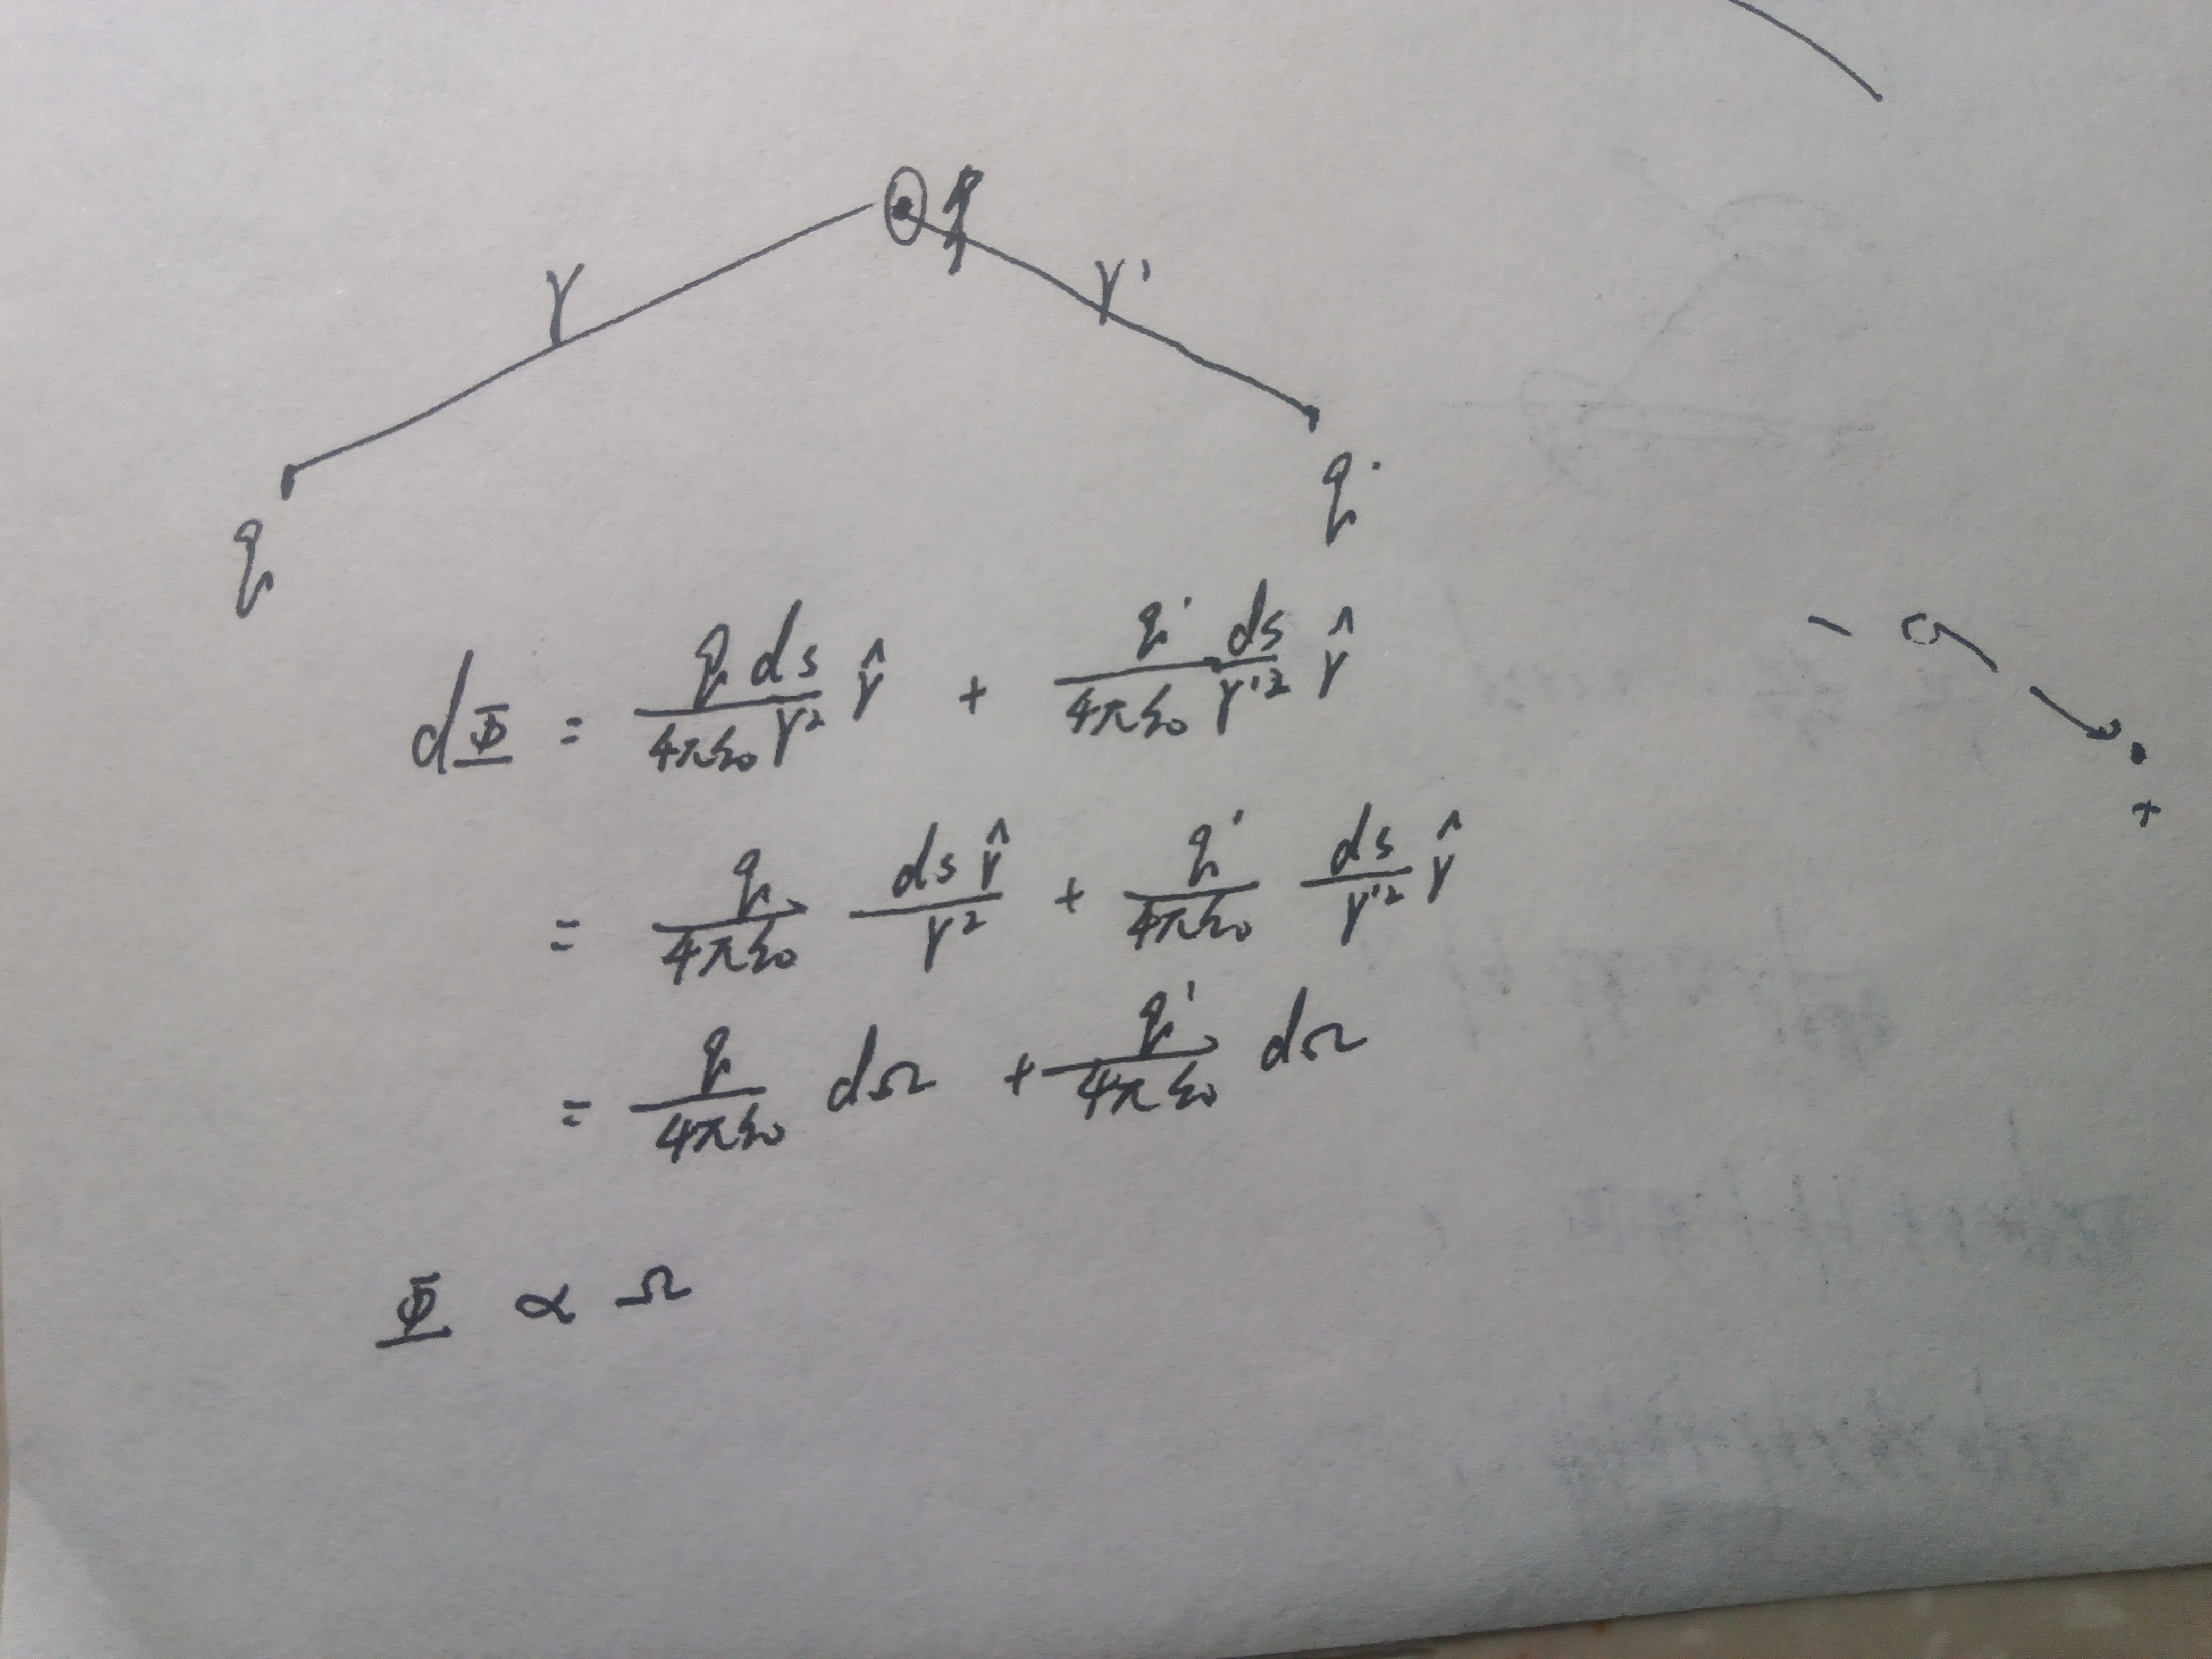 r r'
q q'
dΦ = q ds / 4πε₀ r² r̂ + q' ds / 4πε₀ r'² r̂
= q / 4πε₀ ds r̂ / r² + q' / 4πε₀ ds / r'² r̂
= q / 4πε₀ dΩ + q' / 4πε₀ dΩ
Φ ∝ Ω